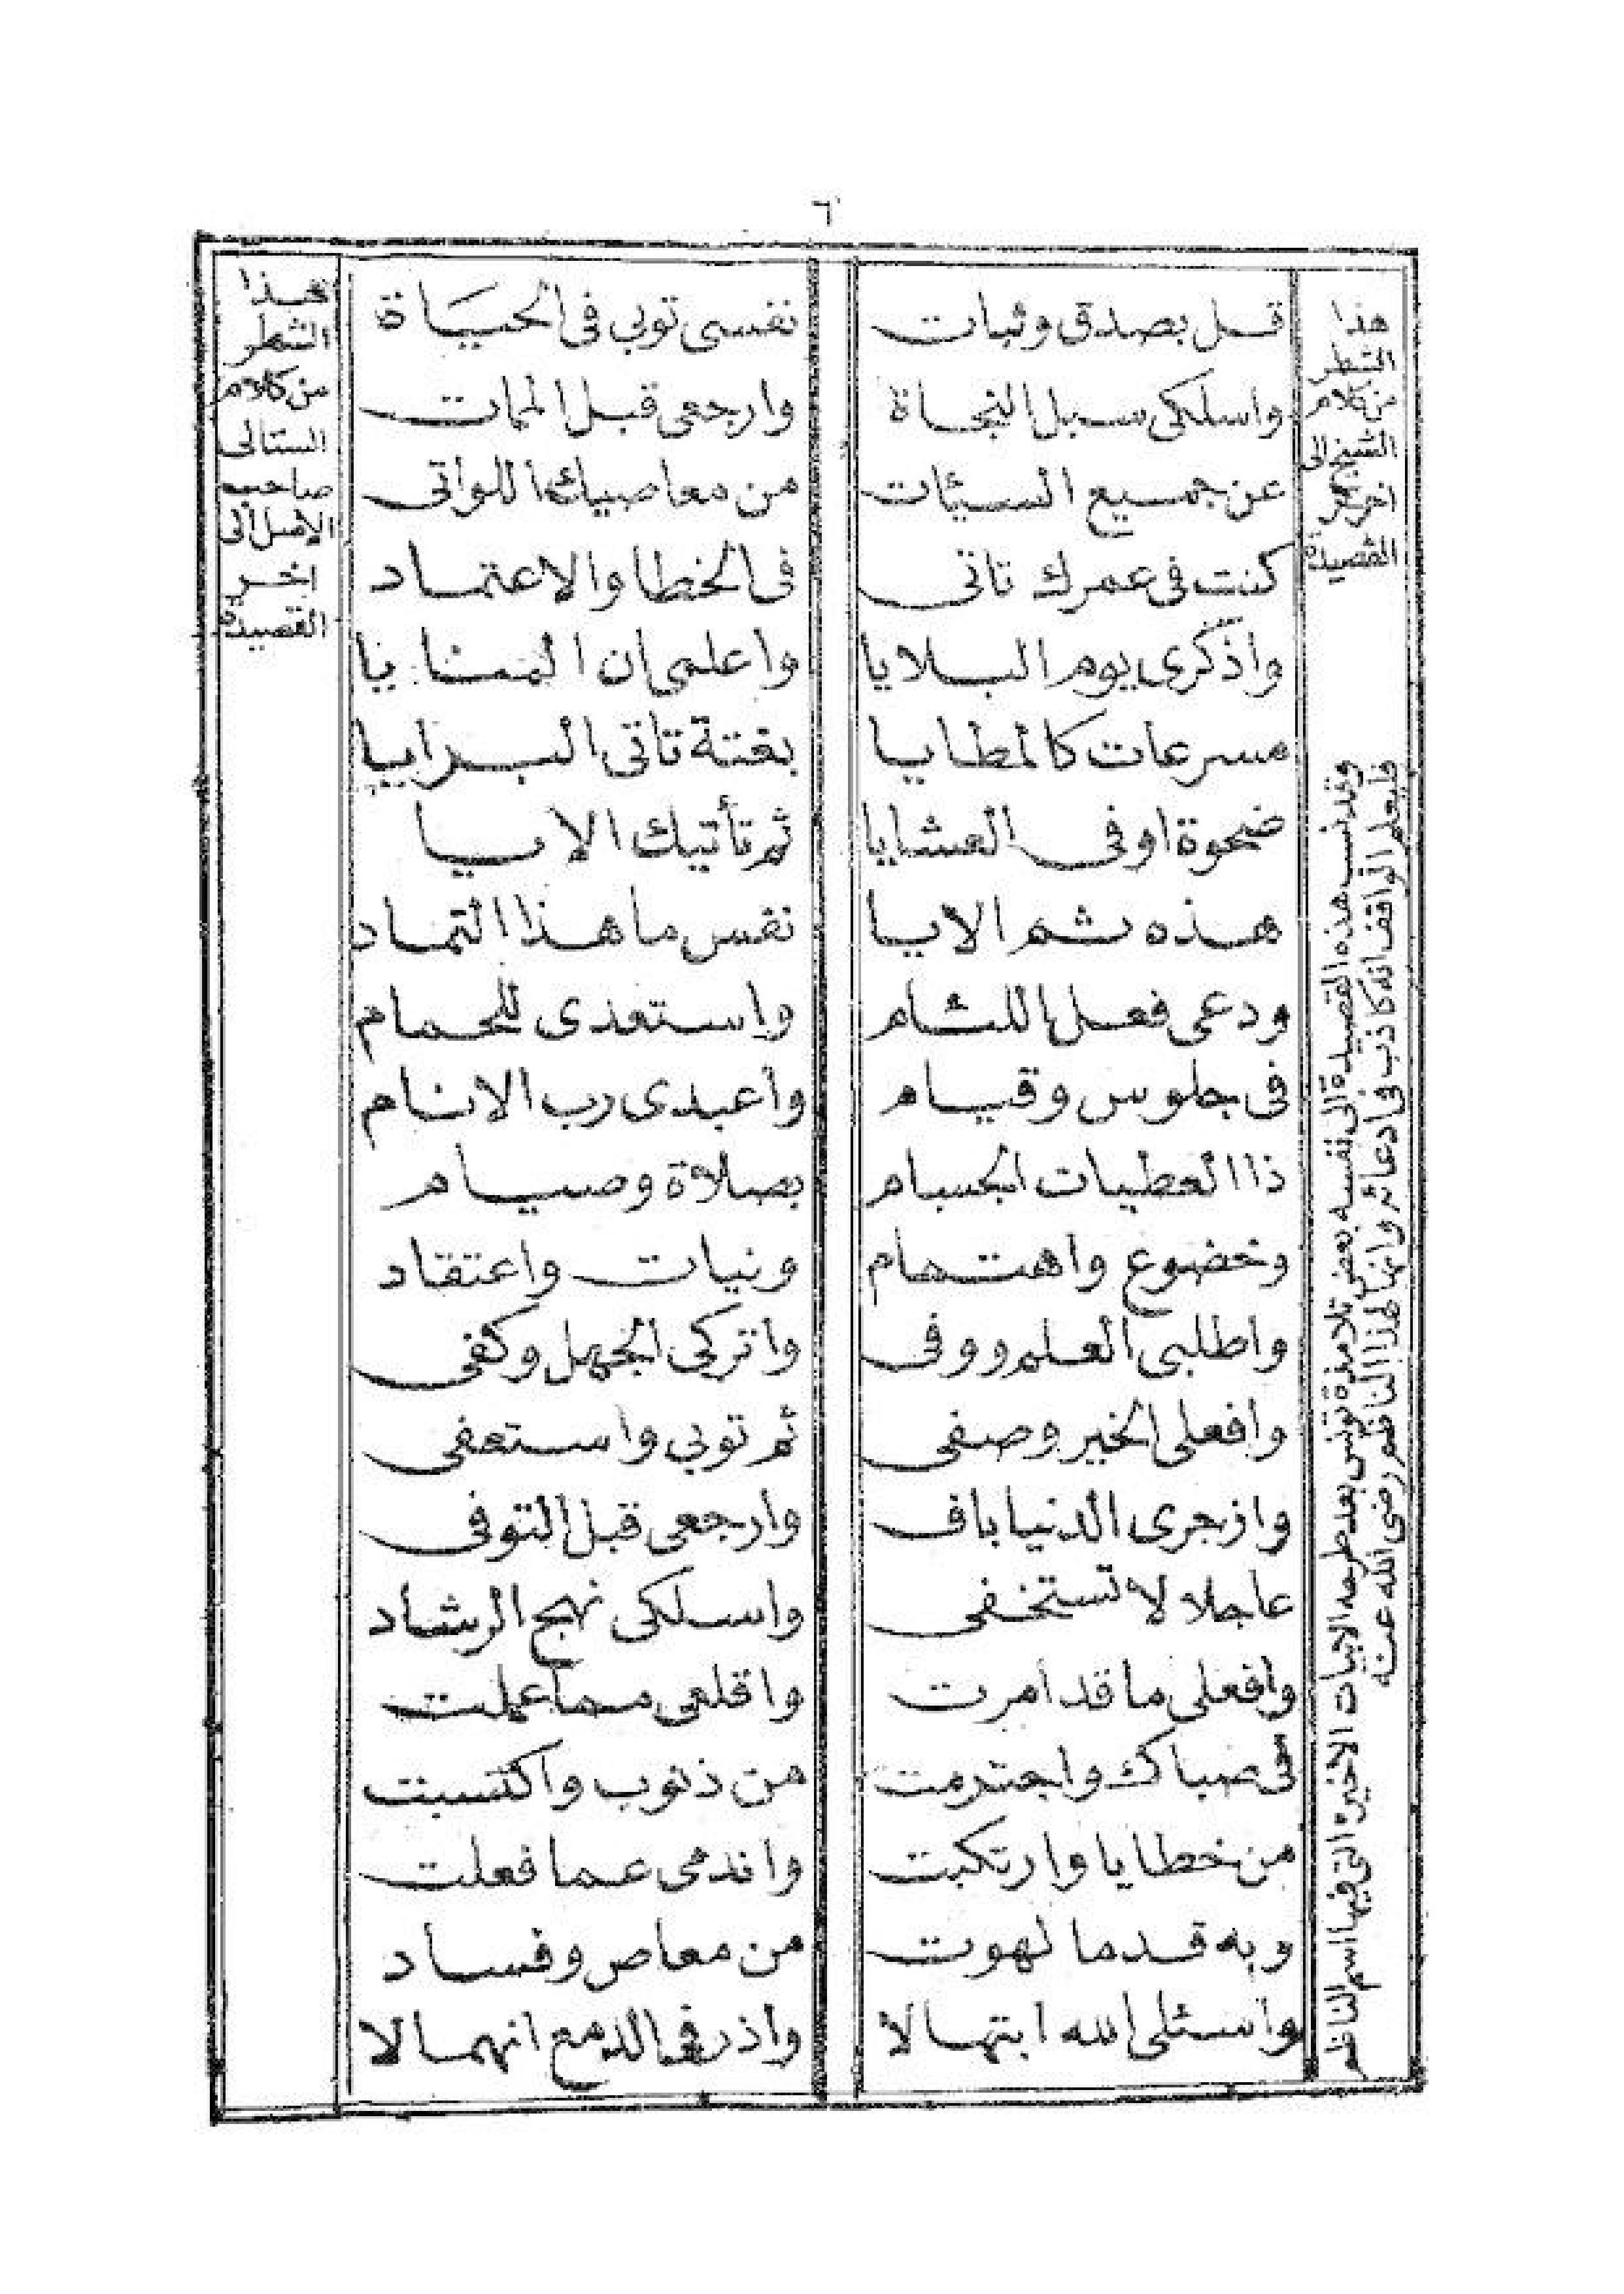 ٦
هذا
الشطر
من كلام
الشيخ الى
اخر
القصيدة
قل بصدق وثبات نفسى توبى فى الحياة
واسلكى سبل النجاة وارجعى قبل الممات
عن جميع السيئات من معاصيك اللواتى
كنت فى عمرك تاتى فى الخطا والاعتماد
واذكرى يوم البلايا واعلمى ان المنايا
مسرعات كالمطايا بغتة تاتى البرايا
ضحوة او فى العشايا ثم تأتيك الايا
هذه ثم الايا نفس ما هذا التماد
ودعى فعل اللئام واستعدى للحمام
فى جلوس وقيام واعبدى رب الانام
ذا العطيات الجسام بصلاة وصيام
وخضوع واهتمام ونيات واعتقاد
واطلبى العلم ووفى واتركى الجهل وكفى
وافعلى الخير وصفى ثم توبى واستعفى
وازجرى الدنيا باف وارجعى قبل التوفى
عاجلا لا تستخفى واسلكى نهج الرشاد
وافعلى ما قد امرت واقلعى مما عملت
فى صباك واجترمت من ذنوب واكتسبت
من خطايا وارتكبت واندمى عما فعلت
وبه قد ما لهوت من معاص وفساد
واسئلى الله ابتهالا واذرفى الدمع انهمالا
هذا
الشطر
من كلام
الستالى
صاحب
الاصل الى
اخر
القصيدة
وقد نسب هذه القصيدة الى نفسه بعض تلامذة تونس بعد طرحه الابيات الاخيرة التى فيها اسم الناظم
فليعلم الواقف انه كاذب فى ادعائه وانها لهذا الناظم رضى الله عنه